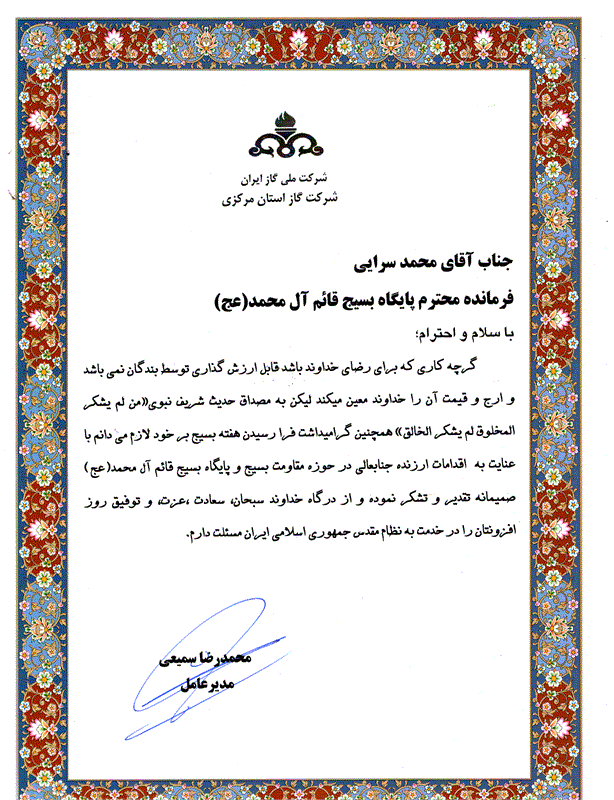 شرکت ملی گاز ایران
شرکت گاز استان مرکزی
جناب آقای محمد سرایی
فرمانده محترم پایگاه بسیج قائم آل محمد(عج)
با سلام و احترام؛
گرچه کاری که برای رضای خداوند باشد قابل ارزش گذاری توسط بندگان نمی باشد
و ارج و قیمت آن را خداوند معین میکند لیکن به مصداق حدیث شریف نبوی«من لم یشکر
المخلوق لم یشکر الخالق» همچنین گرامیداشت فرا رسیدن هفته بسیج بر خود لازم می دانم با
عنایت به اقدامات ارزنده جنابعالی در حوزه مقاومت بسیج و پایگاه بسیج قائم آل محمد(عج)
صمیمانه تقدیر و تشکر نموده و از درگاه خداوند سبحان، سعادت ،عزت، و توفیق روز
افزونتان را در خدمت به نظام مقدس جمهوری اسلامی ایران مسئلت دارم.
محمدرضا سمیعی
مدیرعامل